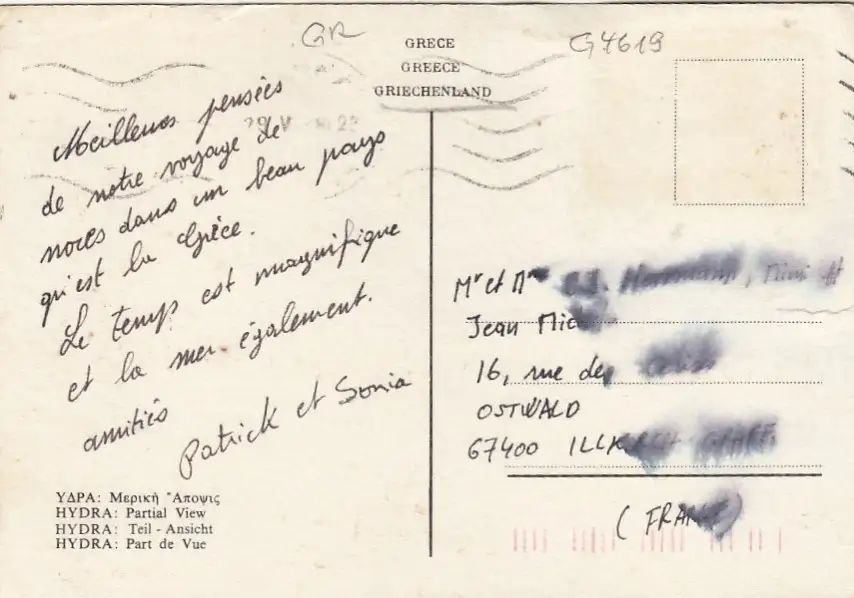 GR
GRECE
GREECE
GRIECHENLAND
G47619
Meilleures pensées
de notre voyage de
noces dans un beau pays
qu'est la Grèce.
Le temps est magnifique
et la mer également.
amitiés
Patrick et Sonia
Mr et Mme
Jean
16, rue des
OSTWALD
67400
(FRANCE)
ΥΔΡΑ: Μερική Ἄποψις
HYDRA: Partial View
HYDRA: Teil - Ansicht
HYDRA: Part de Vue